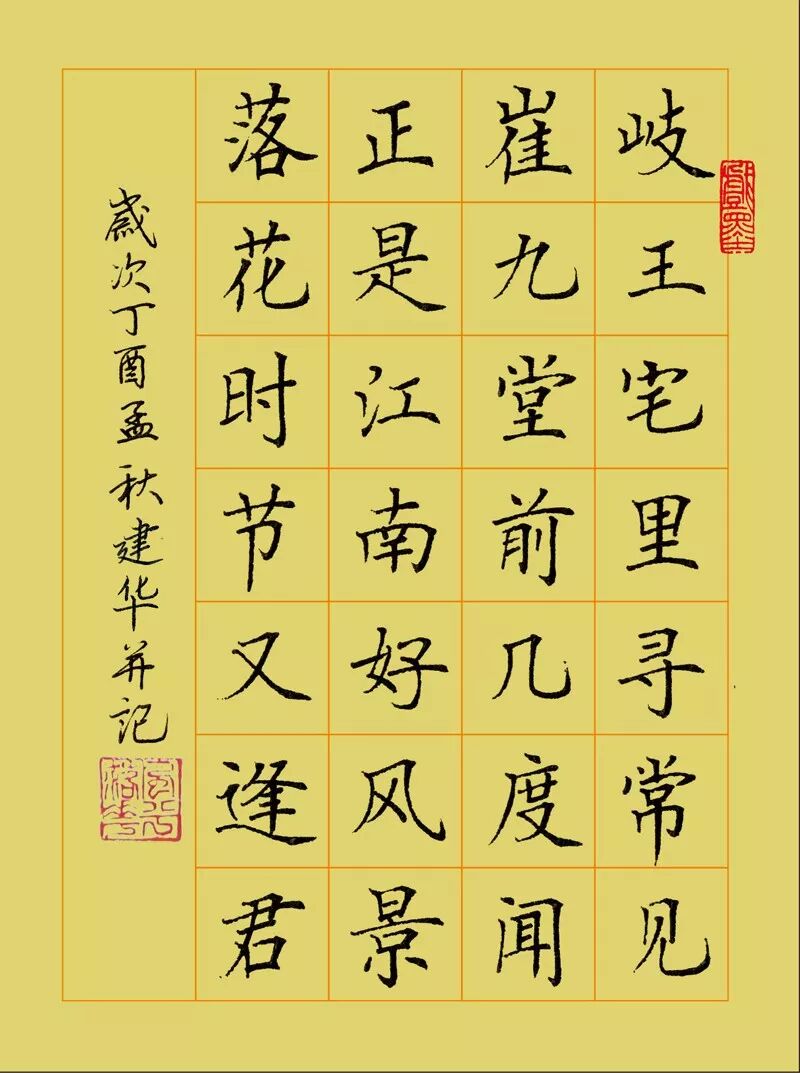 岐王宅里寻常见
崔九堂前几度闻
正是江南好风景
落花时节又逢君
歲次丁酉孟秋建华并記